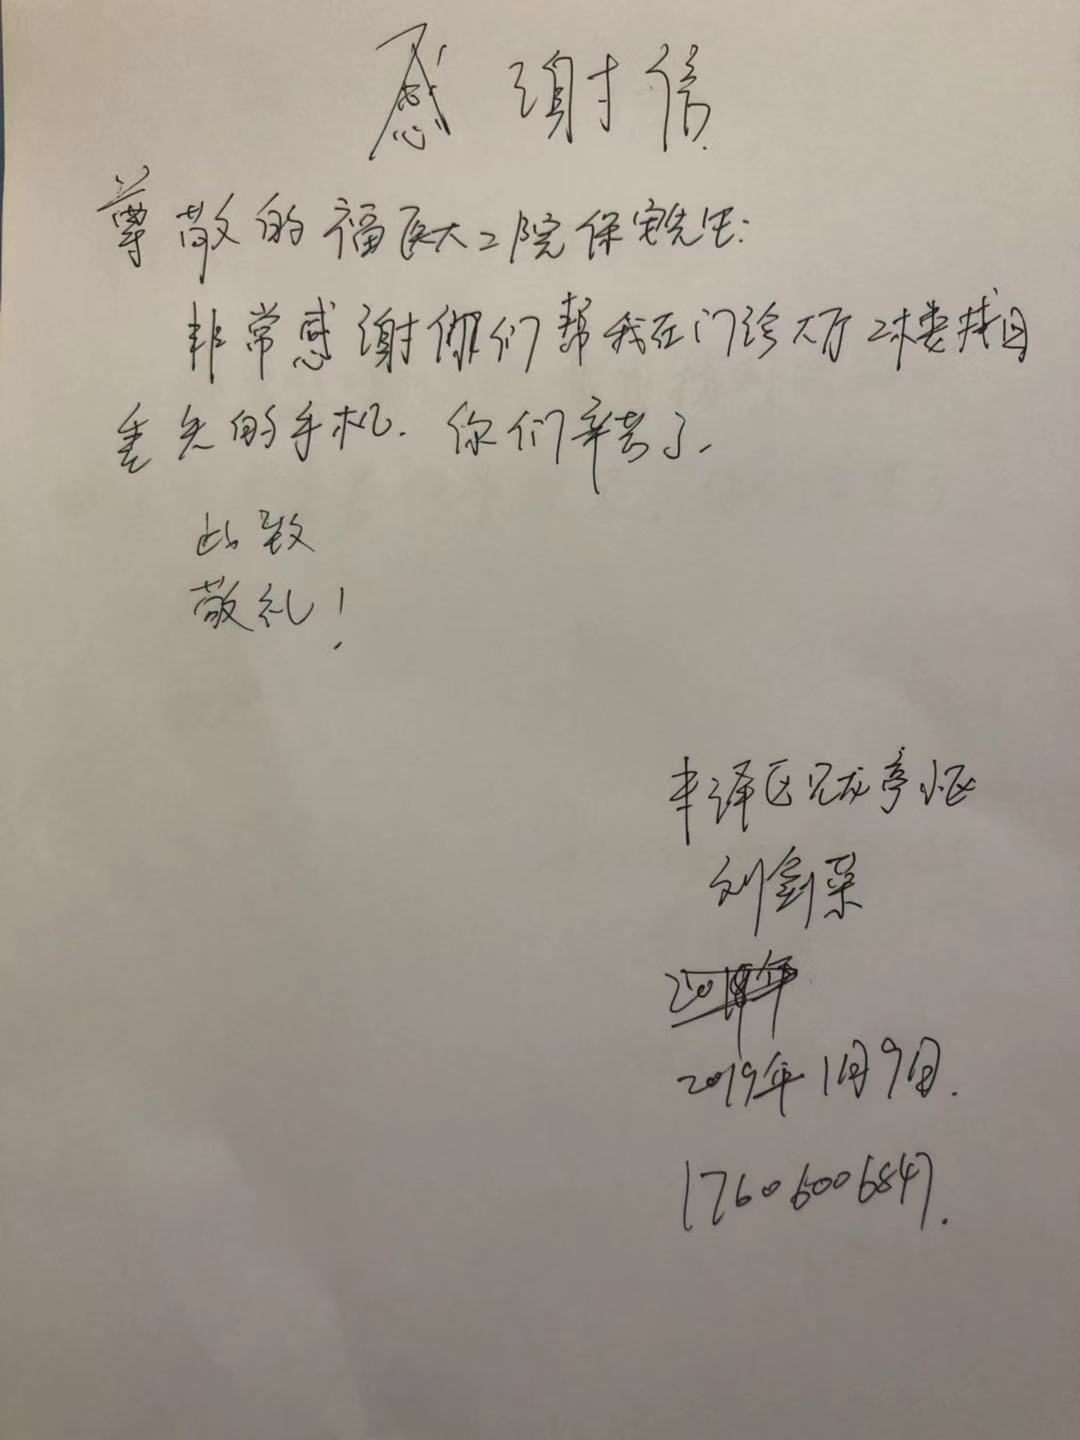 感谢信
尊敬的福医大二院保安先生:
非常感谢你们帮我在门诊大厅二楼找回
丢失的手机. 你们辛苦了.
此致
敬礼!
丰泽区龙亭小区
刘剑荣
2019年1月9日.
17606006847.